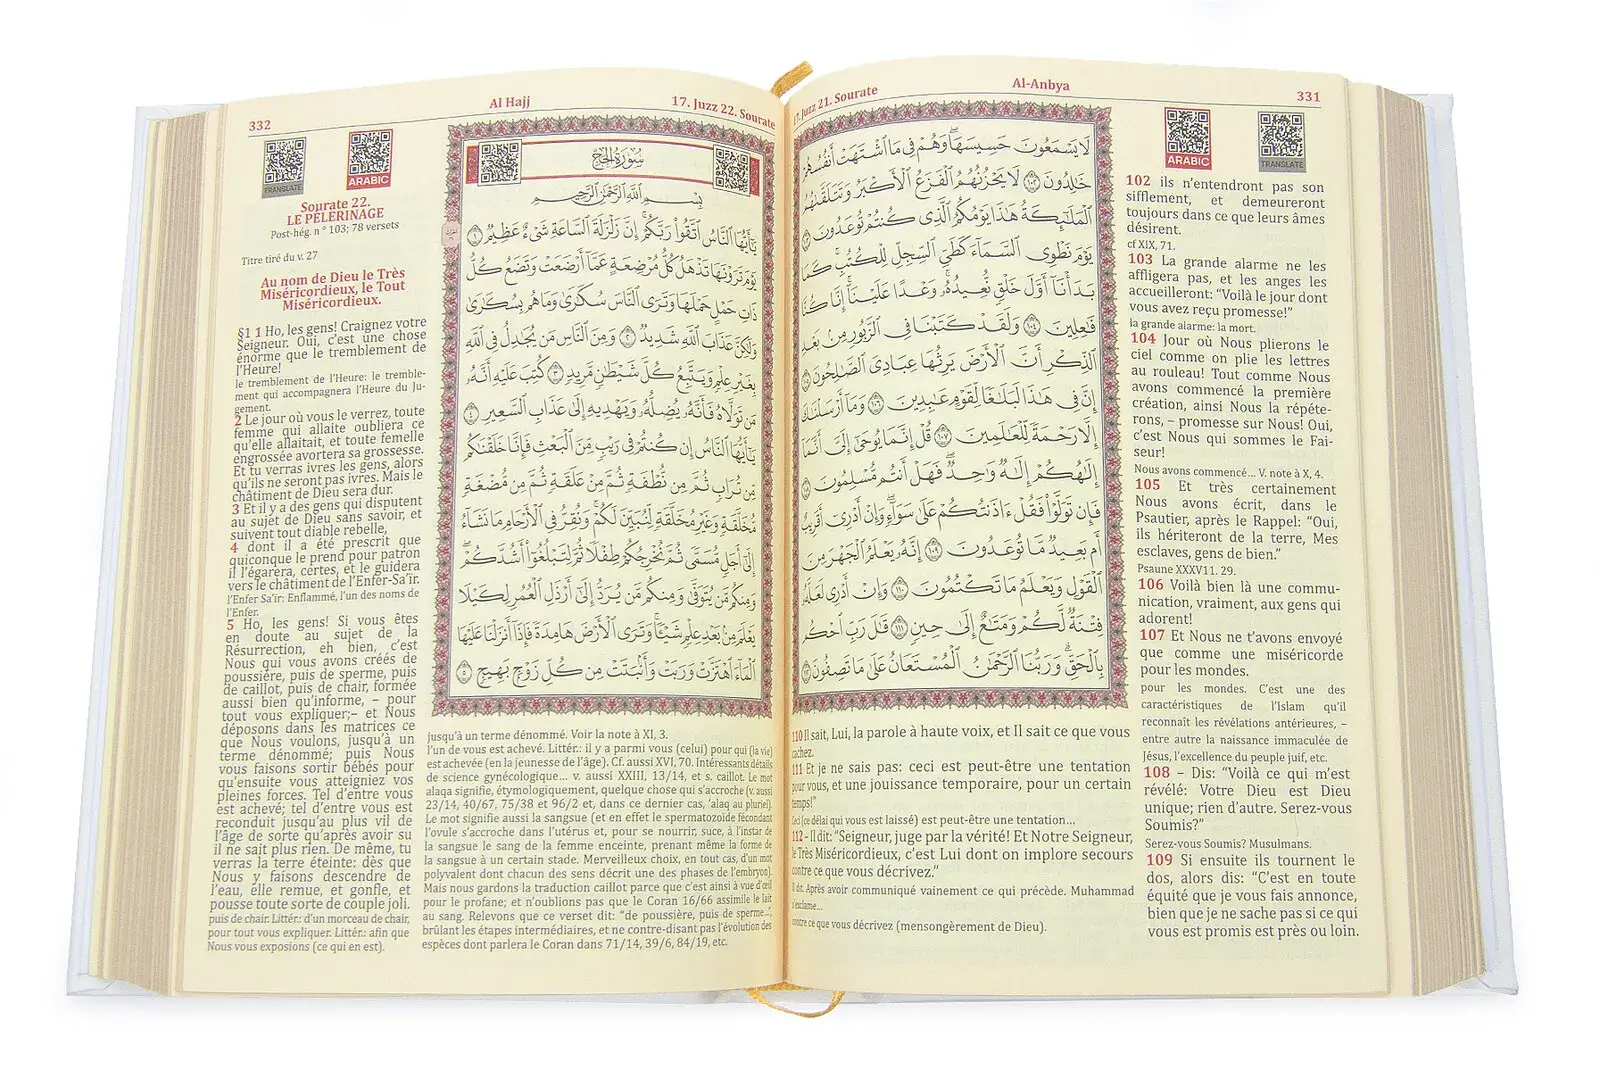 331
Al-Anbya
17. Juzz 21. Sourate
ARABIC
TRANSLATE
لَا يَسْمَعُونَ حَسِيسَهَا وَهُمْ فِي مَا اشْتَهَتْ أَنفُسُهُمْ
خَالِدُونَ ١٠٢ لَا يَحْزُنُهُمُ الْفَزَعُ الْأَكْبَرُ وَتَتَلَقَّاهُمُ
الْمَلَائِكَةُ هَذَا يَوْمُكُمُ الَّذِي كُنتُمْ تُوعَدُونَ ١٠٣
يَوْمَ نَطْوِي السَّمَاءَ كَطَيِّ السِّجِلِّ لِلْكُتُبِ كَمَا
بَدَأْنَا أَوَّلَ خَلْقٍ نُّعِيدُهُ وَعْدًا عَلَيْنَا إِنَّا كُنَّا
فَاعِلِينَ ١٠٤ وَلَقَدْ كَتَبْنَا فِي الزَّبُورِ مِن بَعْدِ
الذِّكْرِ أَنَّ الْأَرْضَ يَرِثُهَا عِبَادِيَ الصَّالِحُونَ ١٠٥
إِنَّ فِي هَذَا لَبَلَاغًا لِّقَوْمٍ عَابِدِينَ ١٠٦ وَمَا أَرْسَلْنَاكَ
إِلَّا رَحْمَةً لِّلْعَالَمِينَ ١٠٧ قُلْ إِنَّمَا يُوحَى إِلَيَّ أَنَّمَا
إِلَهُكُمْ إِلَهٌ وَاحِدٌ فَهَلْ أَنتُم مُّسْلِمُونَ ١٠٨
فَإِن تَوَلَّوْا فَقُلْ آذَنتُكُمْ عَلَى سَوَاءٍ وَإِنْ أَدْرِي أَقَرِيبٌ
أَم بَعِيدٌ مَّا تُوعَدُونَ ١٠٩ إِنَّهُ يَعْلَمُ الْجَهْرَ مِنَ
الْقَوْلِ وَيَعْلَمُ مَا تَكْتُمُونَ ١١٠ وَإِنْ أَدْرِي لَعَلَّهُ
فِتْنَةٌ لَّكُمْ وَمَتَاعٌ إِلَى حِينٍ ١١١ قَالَ رَبِّ احْكُم
بِالْحَقِّ وَرَبُّنَا الرَّحْمَنُ الْمُسْتَعَانُ عَلَى مَا تَصِفُونَ ١١٢
102 ils n'entendront pas son
sifflement, et demeureront
toujours dans ce que leurs âmes
désirent.
cf XIX, 71.
103 La grande alarme ne les
affligera pas, et les anges les
accueilleront: “Voilà le jour dont
vous avez reçu promesse!”
la grande alarme: la mort.
104 Jour où Nous plierons le
ciel comme on plie les lettres
au rouleau! Tout comme Nous
avons commencé la première
création, ainsi Nous la répéte-
rons, – promesse sur Nous! Oui,
c'est Nous qui sommes le Fai-
seur!
Nous avons commencé... V. note à X, 4.
105 Et très certainement
Nous avons écrit, dans le
Psautier, après le Rappel: “Oui,
ils hériteront de la terre, Mes
esclaves, gens de bien.”
Psaune XXXV11. 29.
106 Voilà bien là une commu-
nication, vraiment, aux gens qui
adorent!
107 Et Nous ne t'avons envoyé
que comme une miséricorde
pour les mondes.
pour les mondes. C'est une des
caractéristiques de l'Islam qu'il
reconnaît les révélations antérieures, –
entre autre la naissance immaculée de
Jésus, l'excellence du peuple juif, etc.
108 – Dis: “Voilà ce qui m'est
révélé: Votre Dieu est Dieu
unique; rien d'autre. Serez-vous
Soumis?”
Serez-vous Soumis? Musulmans.
109 Si ensuite ils tournent le
dos, alors dis: “C'est en toute
équité que je vous fais annonce,
bien que je ne sache pas si ce qui
vous est promis est près ou loin.
110 Il sait, Lui, la parole à haute voix, et Il sait ce que vous
cachez.
111 Et je ne sais pas: ceci est peut-être une tentation
pour vous, et une jouissance temporaire, pour un certain
temps!”
Ceci (ce délai qui vous est laissé) est peut-être une tentation...
112 - Il dit: “Seigneur, juge par la vérité! Et Notre Seigneur,
le Très Miséricordieux, c'est Lui dont on implore secours
contre ce que vous décrivez.”
Il dit. Après avoir communiqué vainement ce qui précède. Muhammad
s'exclame...
contre ce que vous décrivez (mensongèrement de Dieu).
332
Al Hajj
17. Juzz 22. Sourate
TRANSLATE
ARABIC
Sourate 22.
LE PELERINAGE
Post-hég. n ° 103; 78 versets
Titre tiré du v. 27
Au nom de Dieu le Très
Miséricordieux, le Tout
Miséricordieux.
§1 1 Ho, les gens! Craignez votre
Seigneur. Oui, c'est une chose
énorme que le tremblement de
l'Heure!
le tremblement de l'Heure: le tremble-
ment qui accompagnera l'Heure du Ju-
gement.
2 Le jour où vous le verrez, toute
femme qui allaite oubliera ce
qu'elle allaitait, et toute femelle
engrossée avortera sa grossesse.
Et tu verras ivres les gens, alors
qu'ils ne seront pas ivres. Mais le
châtiment de Dieu sera dur.
3 Et il y a des gens qui disputent
au sujet de Dieu sans savoir, et
suivent tout diable rebelle,
4 dont il a été prescrit que
quiconque le prend pour patron
il l'égarera, certes, et le guidera
vers le châtiment de l'Enfer-Sa'ir.
l'Enfer Sa'ir: Enflammé, l'un des noms de
l'Enfer.
5 Ho, les gens! Si vous êtes
en doute au sujet de la
Résurrection, eh bien, c'est
Nous qui vous avons créés de
poussière, puis de sperme, puis
de caillot, puis de chair, formée
aussi bien qu'informe, – pour
tout vous expliquer;– et Nous
déposons dans les matrices ce
que Nous voulons, jusqu'à un
terme dénommé; puis Nous
vous faisons sortir bébés pour
qu'ensuite vous atteigniez vos
pleines forces. Tel d'entre vous
est achevé; tel d'entre vous est
reconduit jusqu'au plus vil de
l'âge de sorte qu'après avoir su
il ne sait plus rien. De même, tu
verras la terre éteinte: dès que
Nous y faisons descendre de
l'eau, elle remue, et gonfle, et
pousse toute sorte de couple joli.
puis de chair. Littér.: d'un morceau de chair,
pour tout vous expliquer. Littér.: afin que
Nous vous exposions (ce qui en est).
سُورَةُ الْحَجِّ
بِسْمِ اللَّهِ الرَّحْمَنِ الرَّحِيمِ
يَا أَيُّهَا النَّاسُ اتَّقُوا رَبَّكُمْ إِنَّ زَلْزَلَةَ السَّاعَةِ شَيْءٌ عَظِيمٌ ١
يَوْمَ تَرَوْنَهَا تَذْهَلُ كُلُّ مُرْضِعَةٍ عَمَّا أَرْضَعَتْ وَتَضَعُ كُلُّ
ذَاتِ حَمْلٍ حَمْلَهَا وَتَرَى النَّاسَ سُكَارَى وَمَا هُم بِسُكَارَى
وَلَكِنَّ عَذَابَ اللَّهِ شَدِيدٌ ٢ وَمِنَ النَّاسِ مَن يُجَادِلُ فِي اللَّهِ
بِغَيْرِ عِلْمٍ وَيَتَّبِعُ كُلَّ شَيْطَانٍ مَّرِيدٍ ٣ كُتِبَ عَلَيْهِ أَنَّهُ
مَن تَوَلَّاهُ فَأَنَّهُ يُضِلُّهُ وَيَهْدِيهِ إِلَى عَذَابِ السَّعِيرِ ٤
يَا أَيُّهَا النَّاسُ إِن كُنتُمْ فِي رَيْبٍ مِّنَ الْبَعْثِ فَإِنَّا خَلَقْنَاكُم
مِّن تُرَابٍ ثُمَّ مِن نُّطْفَةٍ ثُمَّ مِنْ عَلَقَةٍ ثُمَّ مِن مُّضْغَةٍ
مُّخَلَّقَةٍ وَغَيْرِ مُخَلَّقَةٍ لِّنُبَيِّنَ لَكُمْ وَنُقِرُّ فِي الْأَرْحَامِ مَا نَشَاءُ
إِلَى أَجَلٍ مُّسَمًّى ثُمَّ نُخْرِجُكُمْ طِفْلًا ثُمَّ لِتَبْلُغُوا أَشُدَّكُمْ
وَمِنكُم مَّن يُتَوَفَّى وَمِنكُم مَّن يُرَدُّ إِلَى أَرْذَلِ الْعُمُرِ لِكَيْلَا
يَعْلَمَ مِن بَعْدِ عِلْمٍ شَيْئًا وَتَرَى الْأَرْضَ هَامِدَةً فَإِذَا أَنزَلْنَا عَلَيْهَا
الْمَاءَ اهْتَزَّتْ وَرَبَتْ وَأَنبَتَتْ مِن كُلِّ زَوْجٍ بَهِيجٍ ٥
jusqu'à un terme dénommé. Voir la note à XI, 3.
l'un de vous est achevé. Littér.: il y a parmi vous (celui) pour qui (la vie)
est achevée (en la jeunesse de l'âge). Cf. aussi XVI, 70. Intéressants détails
de science gynécologique... v. aussi XXIII, 13/14, et s. caillot. Le mot
alaqa signifie, étymologiquement, quelque chose qui s'accroche (v. aussi
23/14, 40/67, 75/38 et 96/2 et, dans ce dernier cas, 'alaq au pluriel).
Le mot signifie aussi la sangsue (et en effet le spermatozoïde fécondant
l'ovule s'accroche dans l'utérus et, pour se nourrir, suce, à l'instar de
la sangsue le sang de la femme enceinte, prenant même la forme de
la sangsue à un certain stade. Merveilleux choix, en tout cas, d'un mot
polyvalent dont chacun des sens décrit une des phases de l'embryon).
Mais nous gardons la traduction caillot parce que c'est ainsi à vue d'œil
pour le profane; et n'oublions pas que le Coran 16/66 assimile le lait
au sang. Relevons que ce verset dit: “de poussière, puis de sperme...”,
brûlant les étapes intermédiaires, et ne contre-disant pas l'évolution des
espèces dont parlera le Coran dans 71/14, 39/6, 84/19, etc.